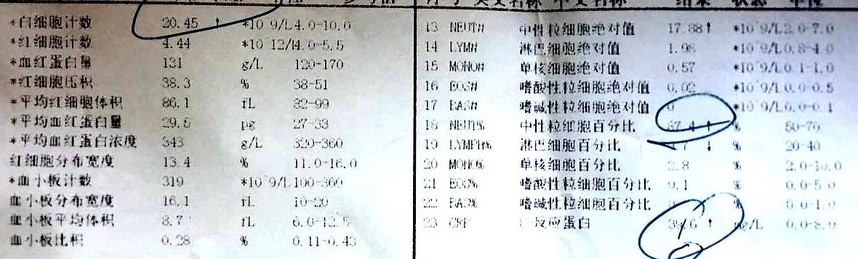 *白细胞计数 20.45 ↑ *10^9/L 4.0-10.0
*红细胞计数 4.44 *10^12/L 4.0-5.5
*血红蛋白量 131 g/L 120-170
*红细胞压积 38.3 % 38-51
*平均红细胞体积 86.1 fL 82-99
*平均血红蛋白量 29.5 pg 27-33
*平均血红蛋白浓度 343 g/L 320-360
红细胞分布宽度 13.4 % 11.0-16.0
*血小板计数 319 *10^9/L 100-300
血小板分布宽度 16.1 fL 10-20
血小板平均体积 8.7 fL 6.0-12.5
血小板比积 0.28 % 0.11-0.43
13 NEUT# 中性粒细胞绝对值 17.88↑ *10^9/L 2.0-7.0
14 LYM# 淋巴细胞绝对值 *10^9/L 0.8-4.0
15 MONO# 单核细胞绝对值 0.57 *10^9/L 0.1-1.0
16 EOS# 嗜酸性粒细胞绝对值 0.02 *10^9/L 0.0-0.5
17 BAS# 嗜碱性粒细胞绝对值 *10^9/L 0.0-0.1
18 NEUT% 中性粒细胞百分比 87.4 ↑ % 50-70
19 LYMPH% 淋巴细胞百分比 ↓ % 20-40
20 MONO% 单核细胞百分比 2.8 % 2.0-10.0
21 EO% 嗜酸性粒细胞百分比 0.1 % 0.0-5.0
22 BAS% 嗜碱性粒细胞百分比 % 0.0-1.0
23 CRP 反应蛋白 ↑ mg/L 0.0-8.0